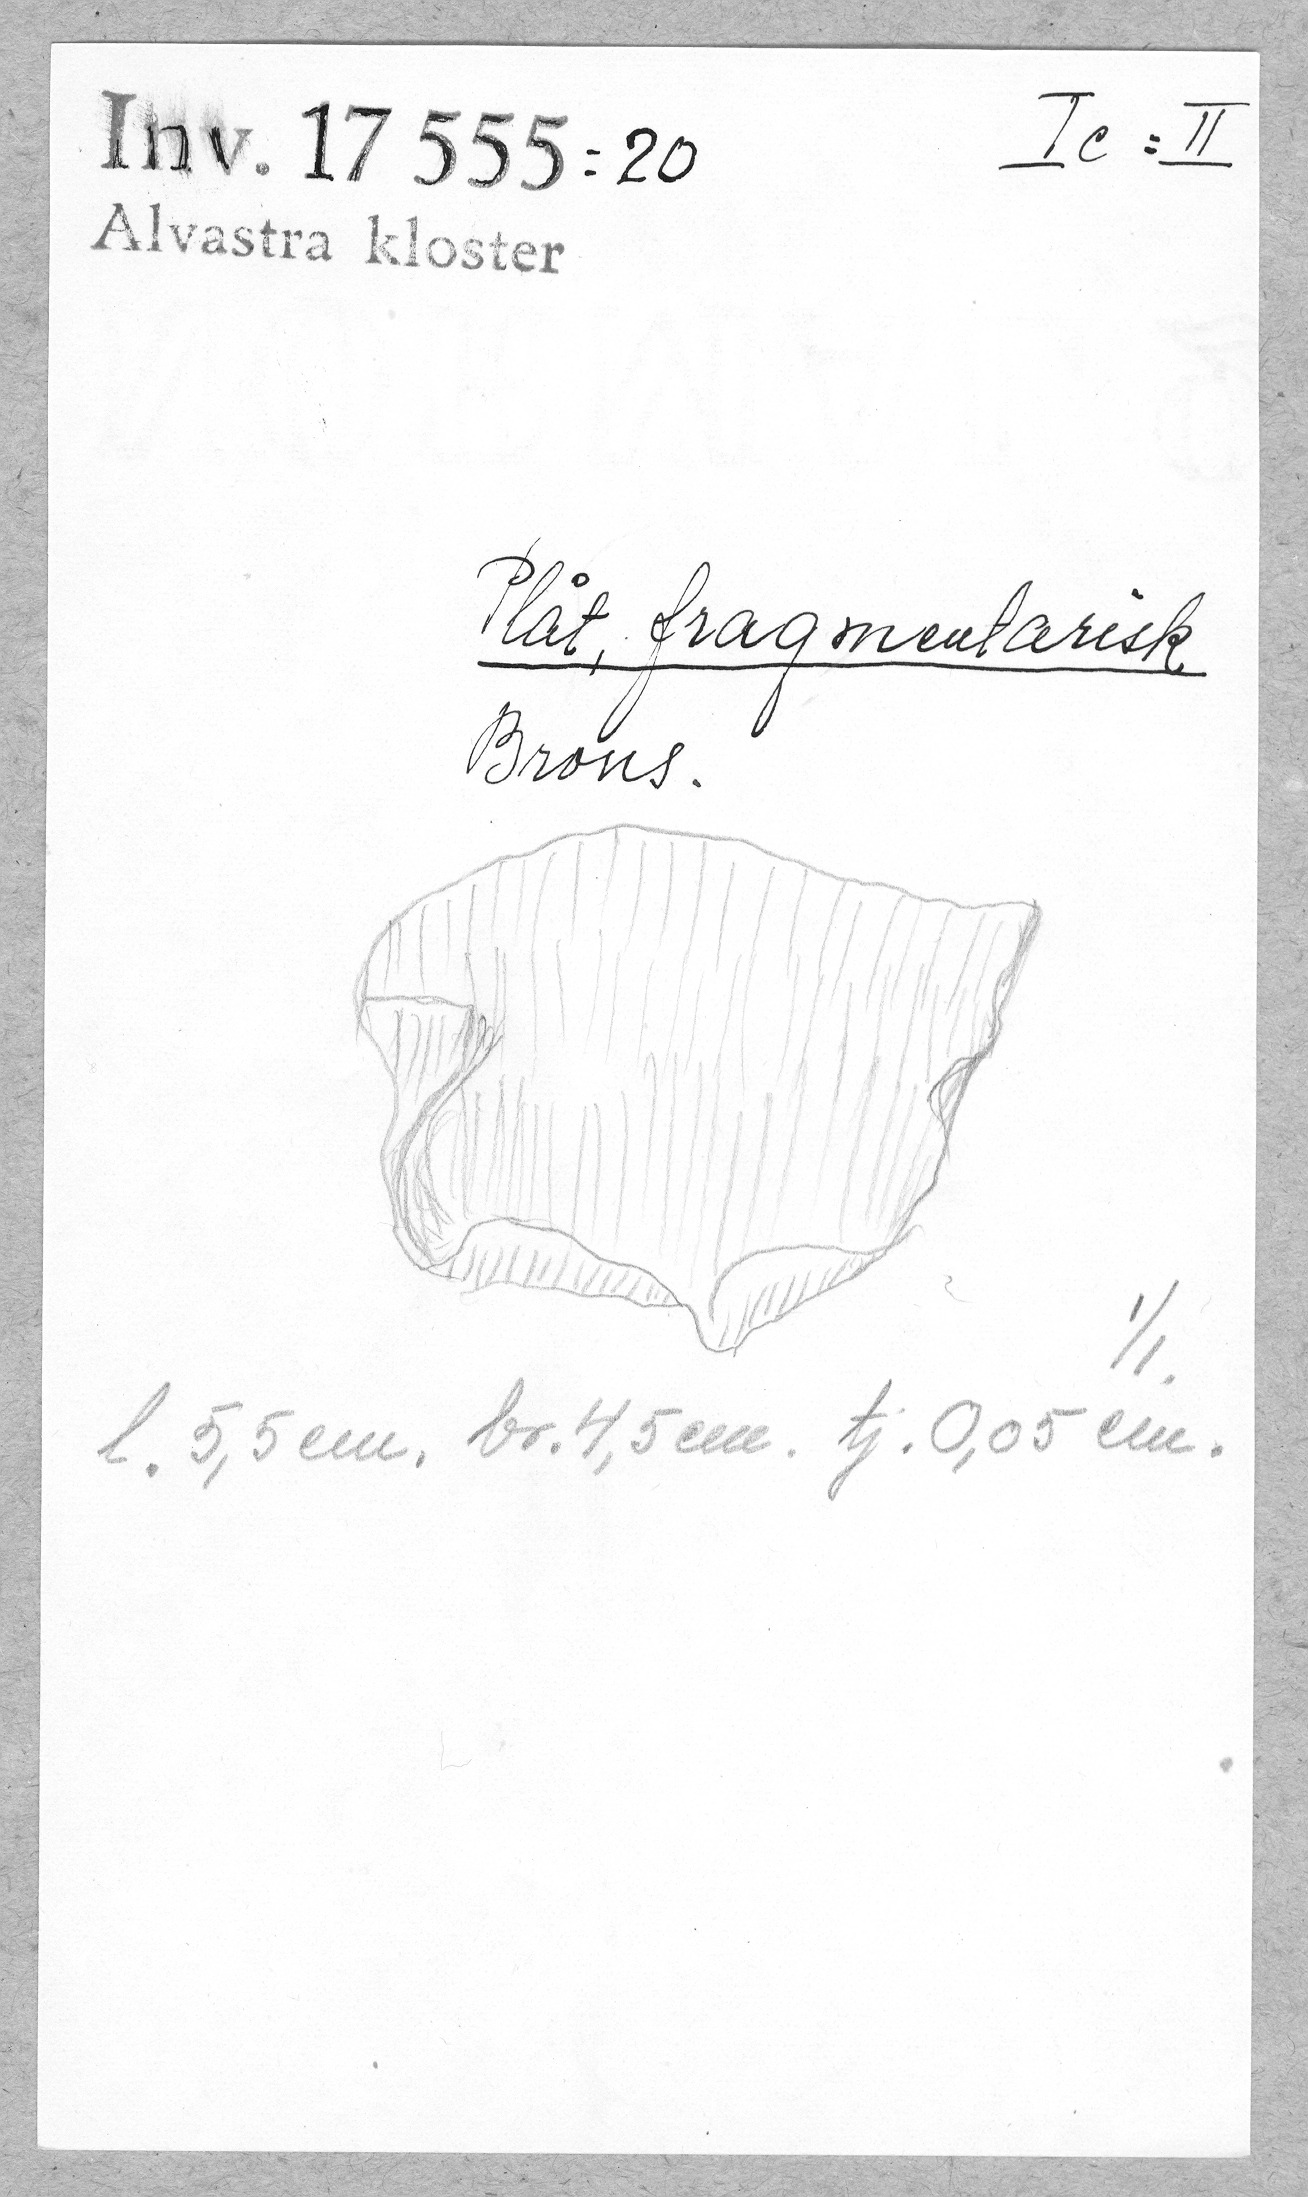 Inv. 17 555:20
Ic:II
Alvastra kloster
Plåt, fragmentarisk
Brons.
1/1.
l. 5,5 cm. br. 4,5 cm. tj. 0,05 cm.